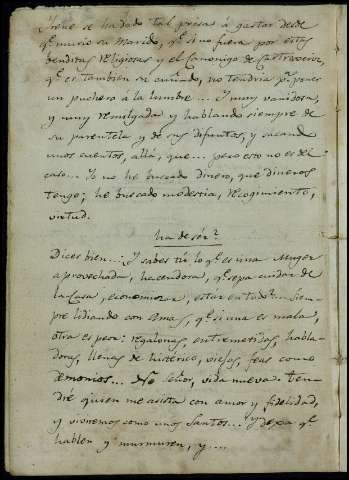 Irene se ha dado tal priesa á gastar desde
qe. murio su Marido, qe. si no fuera por estas
benditas religiosas y el Canonigo de Castroxeriz,
qe. es tambien su cuñado, no tendria pa. poner
un puchero á la lumbre... Y muy vanidosa,
y muy remilgada y hablando siempre de
su parentela y de sus difuntos, y sacando
unos cuentos, allá, que... pero esto no es del
caso... Yo no he buscado dinero, que dineros
tengo; he buscado modestia, recogimiento,
virtud.
Dices bien... Y sabes tú lo qe. es una Muger
aprovechada, hacendosa, qe. sepa cuidar de
la Casa, economizar, estar en todo?... Siem-
pre lidiando con Amas, qe. si una es mala,
otra es peor: regalonas, entremetidas, habla-
doras, llenas de histerico, viejas, feas como
demonios... No Señor, vida nueva. Ten-
dré quien me asista con amor y fidelidad,
y viviremos como unos Santos... Y dexa qe.
hablen y murmuren, y....